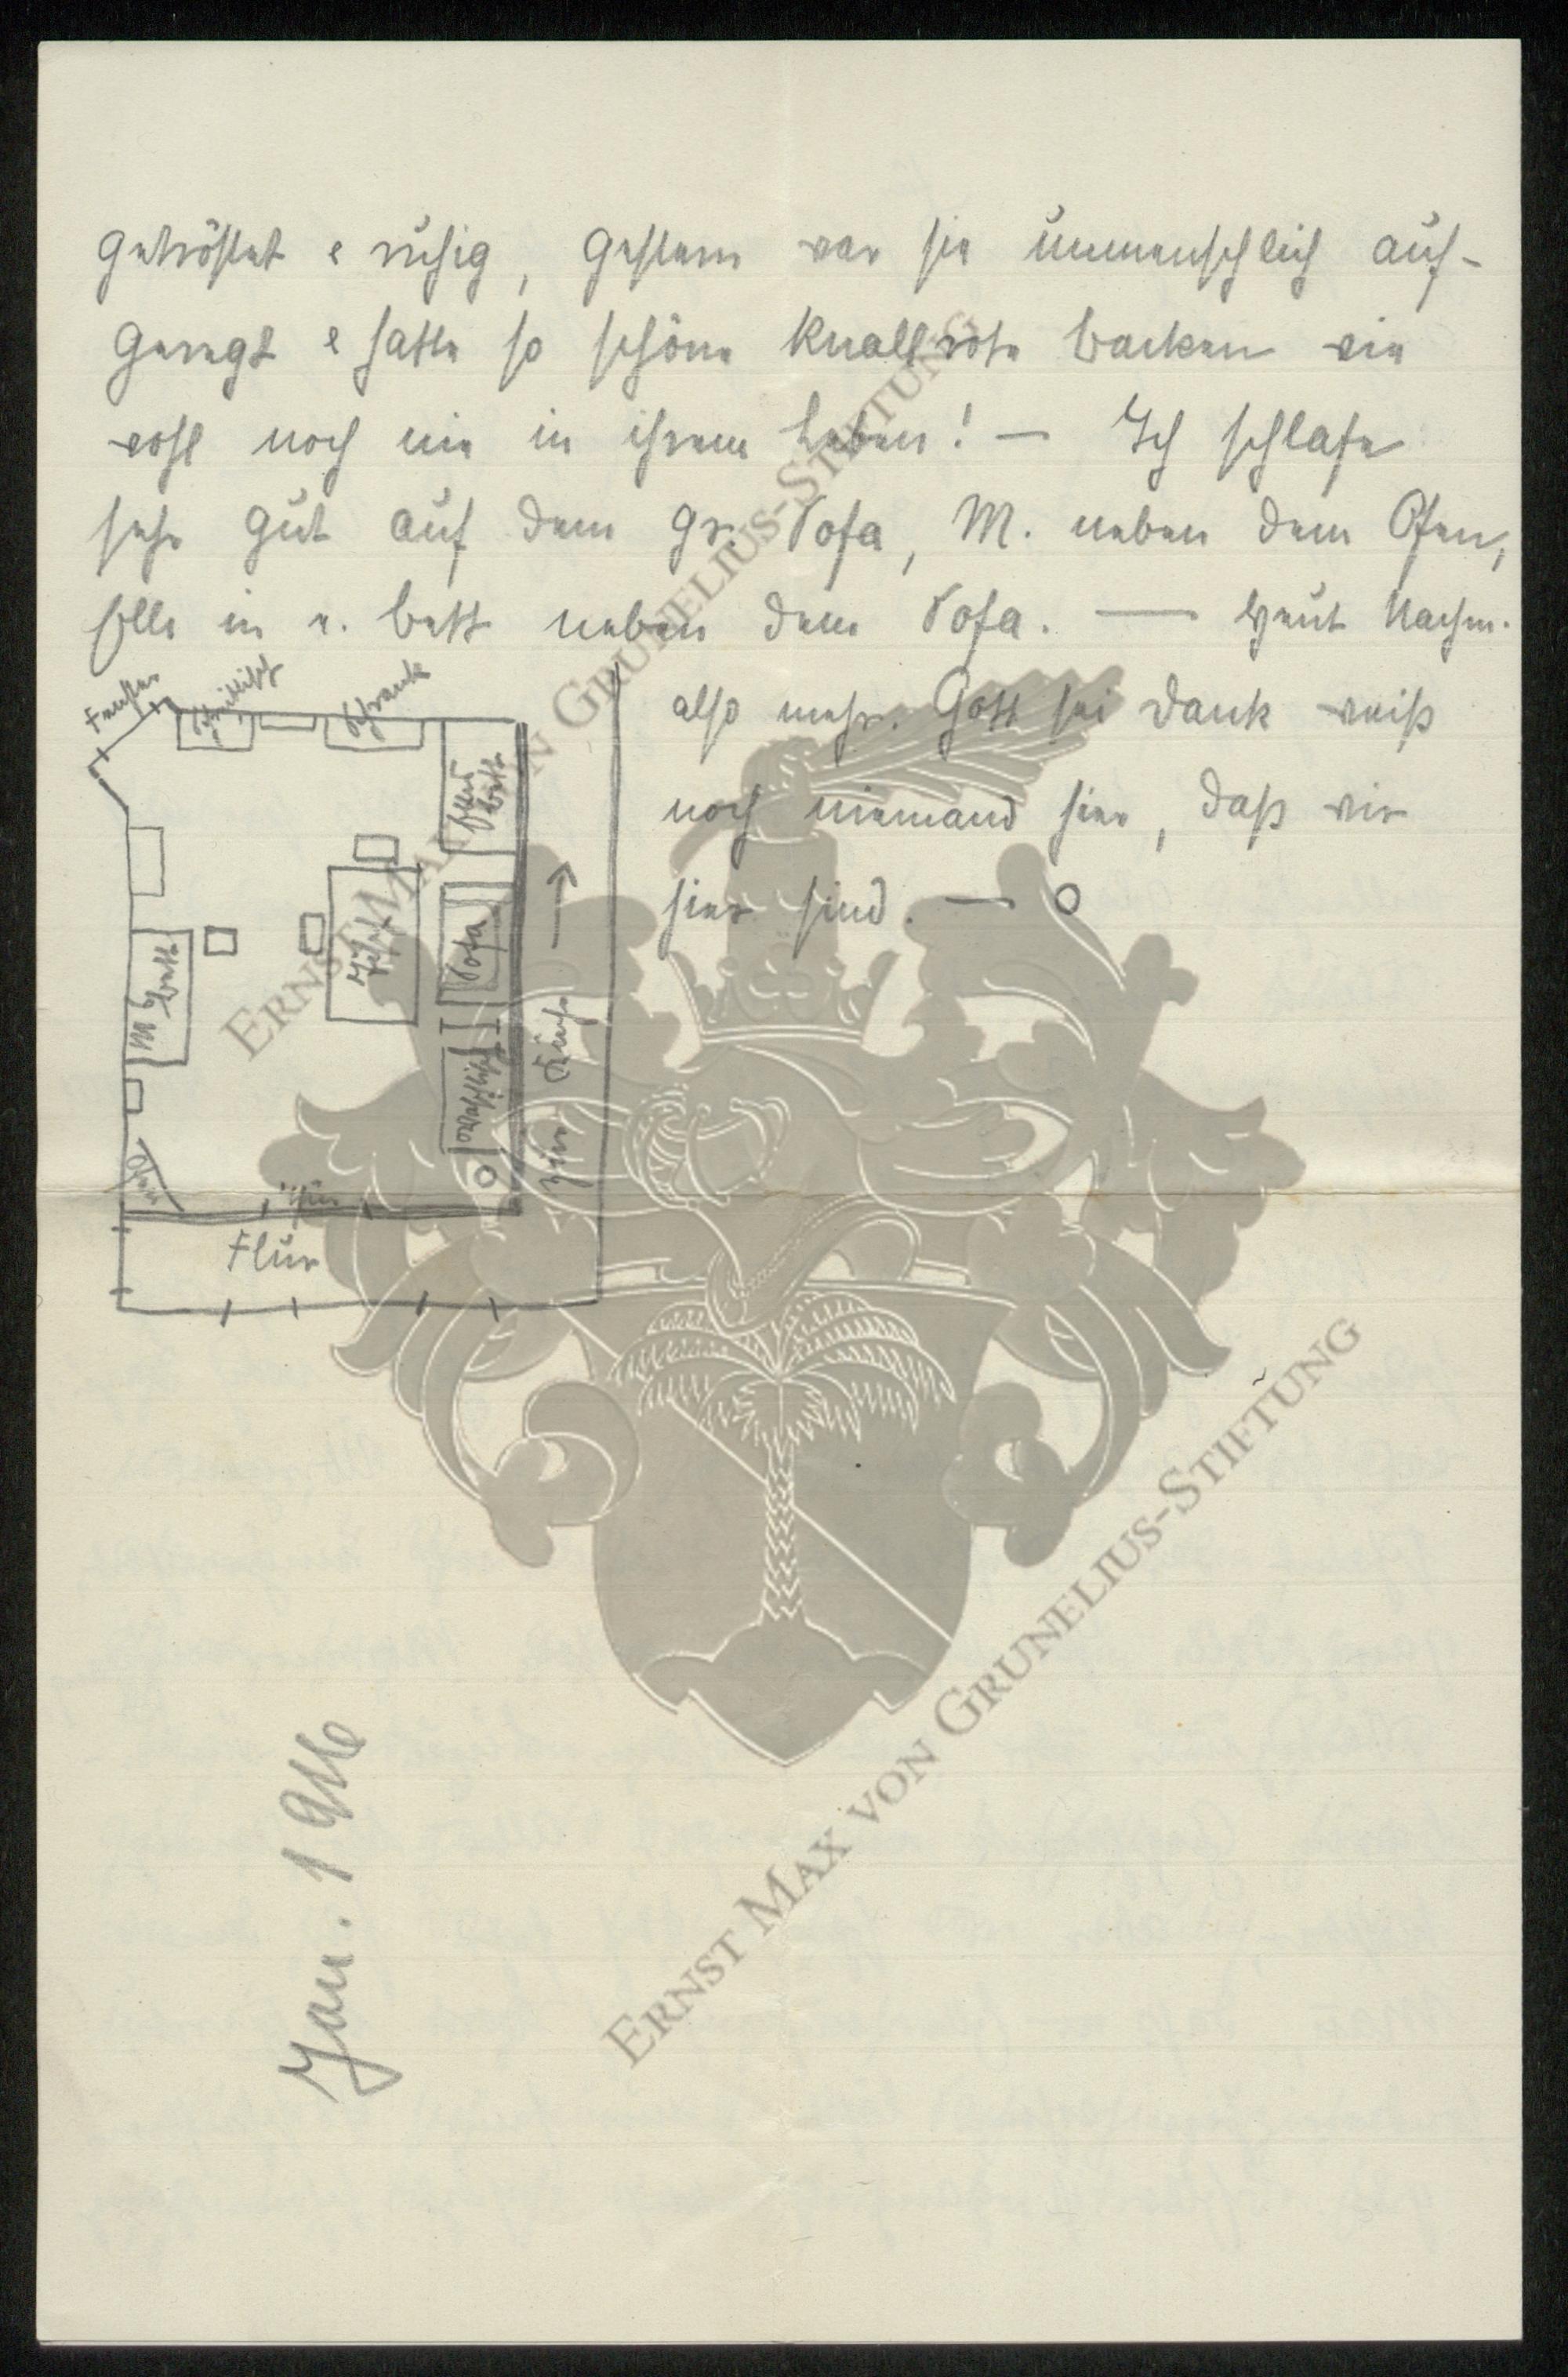 getröstet & ruhig, gestern war sie unmenschlich auf-
geregt & hatte so schöne knallrote Backen wie
wohl noch nie in ihrem Leben! — Ich schlafe
sehr gut auf dem gr. Sofa, M. neben dem Ofen,
in r. Bett neben dem Sofa. — Heut Nachm.
also mehr. Gott sei Dank weiß
noch niemand hier, daß wir
hier sind. —
Fenster
Schreibtisch
Schrank
Bett
Sofa
Tisch
M's Bett
Waschtisch
zur Küche
Ofen
Tür
Flur
Jan. 1916
ERNST MAX VON GRUNELIUS-STIFTUNG
ERNST MAX VON GRUNELIUS-STIFTUNG